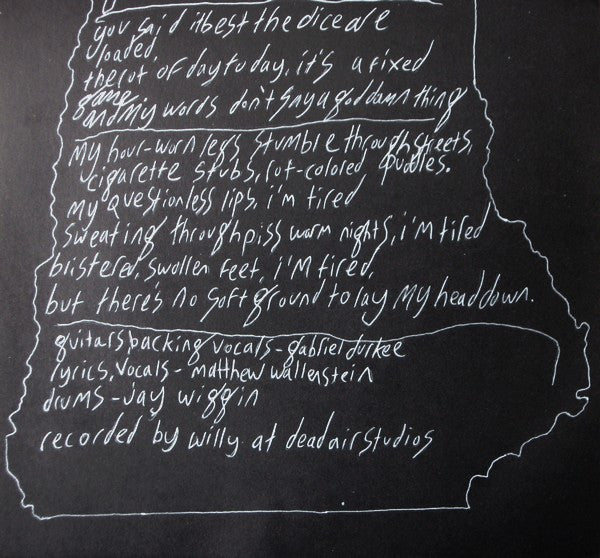 you said it best the dice are
loaded,
the rot of day to day, it's a fixed
game
and my words don't say a goddamn thing
my hour-worn legs, stumble through streets,
cigarette stubs, rot-colored puddles.
my questionless lips, i'm tired
sweating through piss warm nights, i'm tired
blistered, swollen feet, i'm tired,
but there's no soft ground to lay my head down.
guitars, backing vocals - gabriel durkee
lyrics, vocals - matthew wallenstein
drums - jay wiggin
recorded by willy at dead air studios